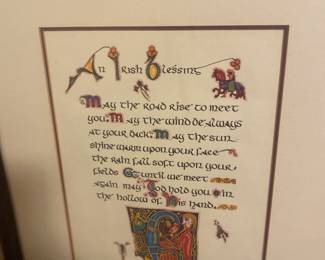 An Irish Blessing
May the road rise to meet
you. May the wind be always
at your back. May the sun
shine warm upon your face
the rain fall soft upon your
fields & until we meet
again may God hold you in
the hollow of His hand.